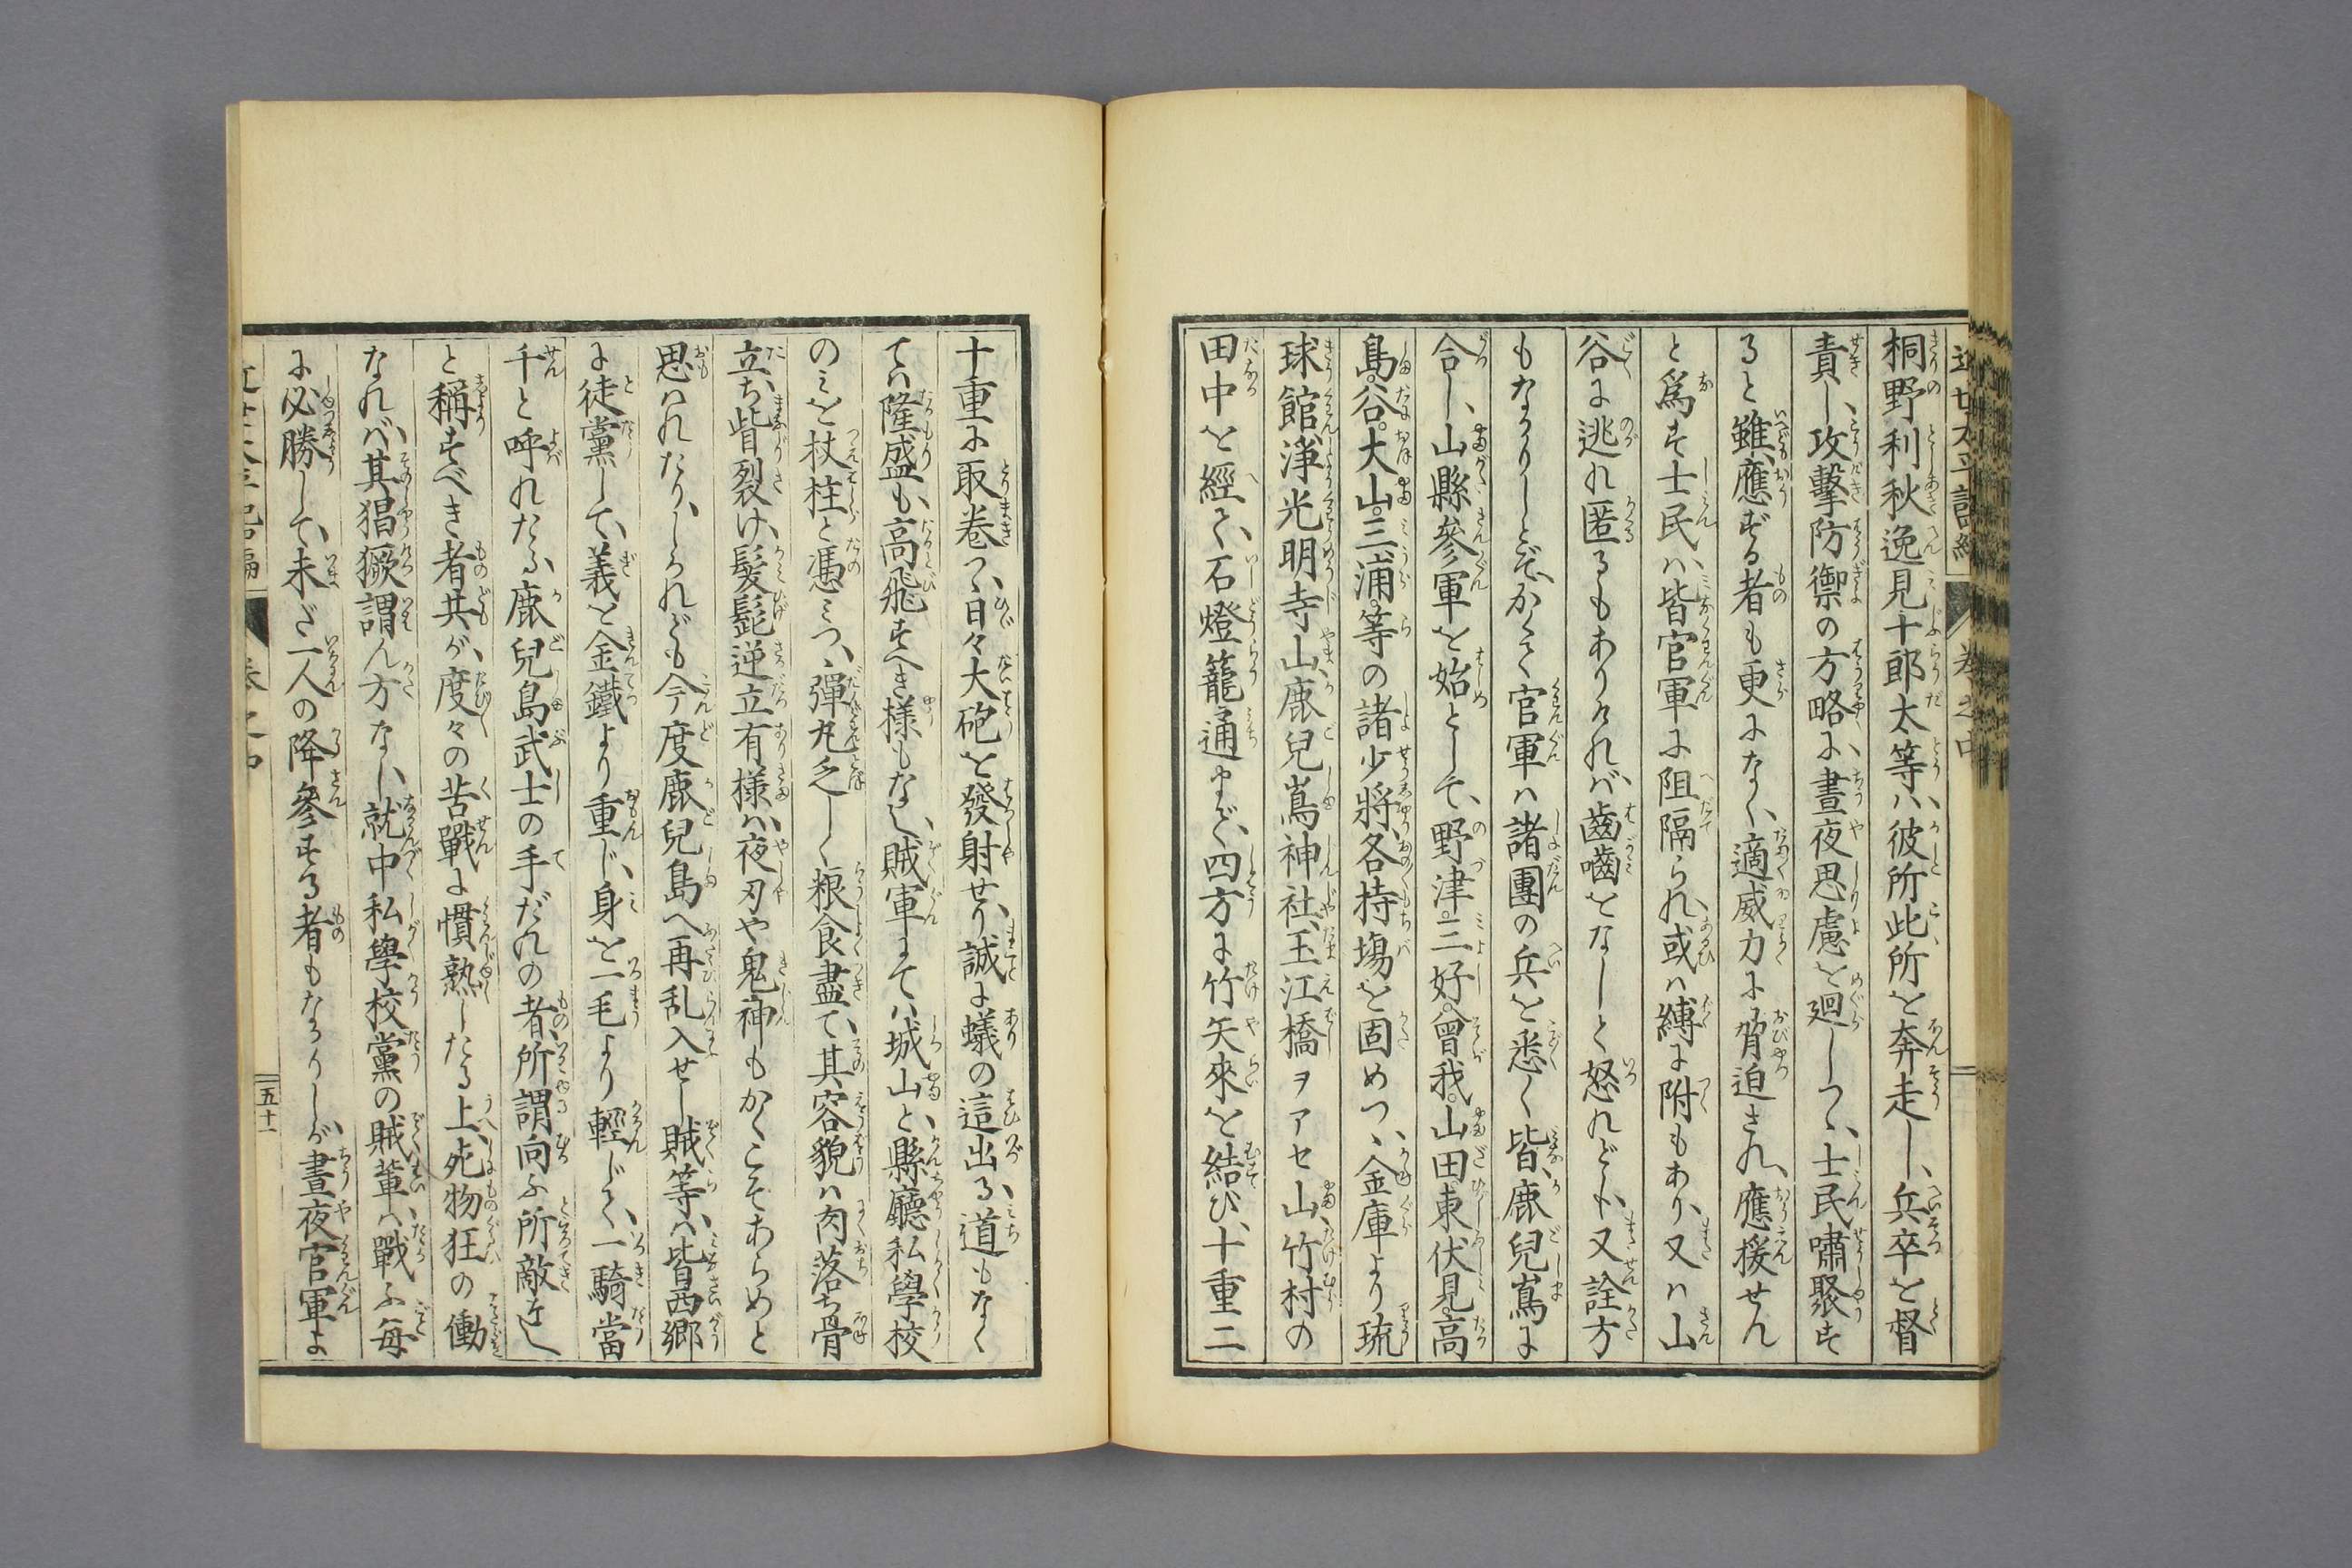 桐野利秋逸見十郎太等ハ、彼所此所を奔走し、兵卒を督
責し、攻擊防禦の方略に、晝夜思慮を廻しつゝ、士民嘯聚す
ると雖、應ずる者も更になく、適威力に脅迫され、應援せん
と爲す士民ハ、皆官軍に阻隔られ、或ハ縛に附もあり、又ハ山
谷に逃れ匿るもありけれバ、齒嚙をなしと怒れども、又詮方
もなかりしとぞ、かくて官軍ハ諸團の兵を悉く皆、鹿兒嶌に
合し、山縣參軍を始として、野津。三好。曾我。山田。東伏見。高
島。谷。大山。三浦。等の諸少將、各持場を固めつゝ、金庫より琉
球館、淨光明寺山、鹿兒嶌神社、玉江橋ヲアセ山、竹村の
田中を經て、石燈籠通まで、四方に竹矢來を結び、十重二
十重に取卷つゝ、日々大砲を發射せり、誠に蟻の這出る、道もなく
てハ隆盛も、高飛すべき樣もなし、賊軍にてハ城山と、縣廳私學校
のミを杖柱と憑ミつ、彈丸乏しく粮食盡て、其容貌ハ肉落ち骨
立ち眥裂け、髮髭逆立有樣ハ、夜刃や鬼神もかくこそあらめと
思はれたり、しかれども今度鹿兒島へ再乱入せし賊等ハ、皆西鄕
に徒黨して、義を金鐵より重じ、身を一毛より輕じて、一騎當
千と呼れたる、鹿兒島武士の手だれの者、所謂向ふ所敵なし
と稱すべき者共が、度々の苦戰に慣熟したる上、死物狂の働
なれバ、其猖獗謂ん方なし、就中私學校黨の賊輩ハ、戰ふ每
に必勝して、未ざ一人の降參する者もなかりしが、晝夜官軍よ
五十一